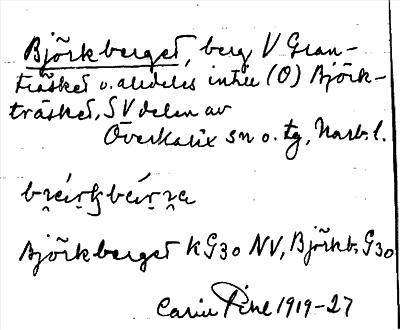 Björkberget, berg V Gran-
träsket o. alldeles intill (O) Björk-
träsket, SV delen av
Överkalix sn o. tg, Norrb. l.
Björkberget KG30 NV, Björkb. G30
Carin Pihl 1919-27